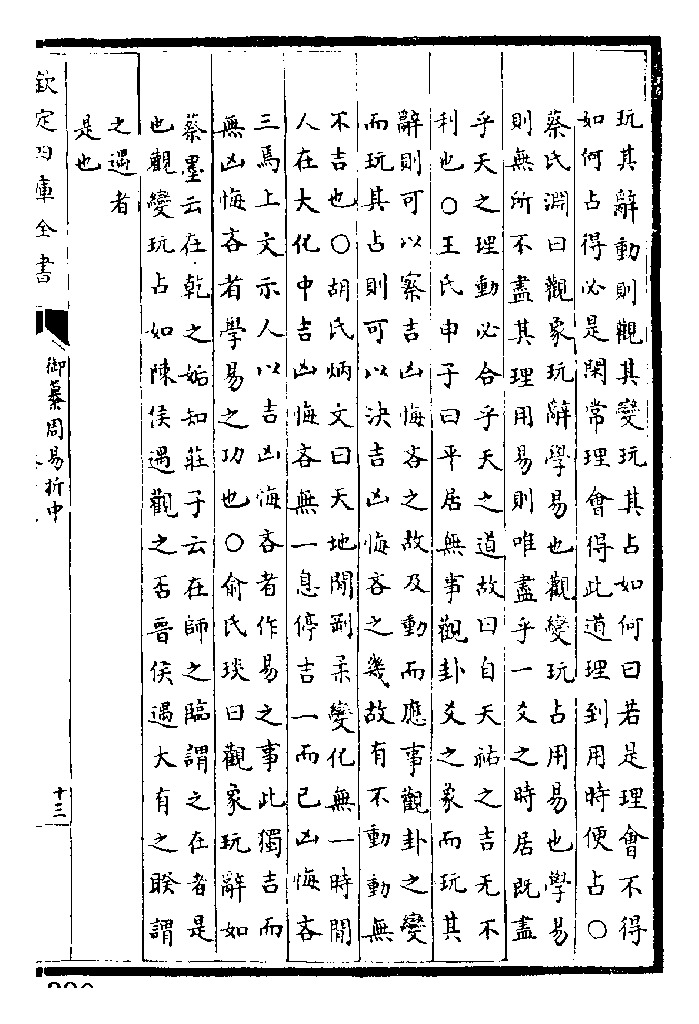 玩其辭動則觀其變玩其占如何曰若是理會不得
如何占得必是閑常理會得此道理到用時便占○
蔡氏淵曰觀象玩辭學易也觀變玩占用易也學易
則無所不盡其理用易則唯盡乎一爻之時居既盡
乎天之理動必合乎天之道故曰自天祐之吉无不
利也○王氏申子曰平居無事觀卦爻之象而玩其
辭則可以察吉凶悔吝之故及動而應事觀卦之變
而玩其占則可以決吉凶悔吝之幾故有不動動無
不吉也○胡氏炳文曰天地間剛柔變化無一時間
人在大化中吉凶悔吝無一息停吉一而已凶悔吝
三焉上文示人以吉凶悔吝者作易之事此獨吉而
無凶悔吝者學易之功也○俞氏琰曰觀象玩辭如
蔡墨云在乾之姤知莊子云在師之臨謂之在者是
也觀變玩占如陳侯遇觀之否晉侯遇大有之睽謂
之遇者
是也
欽定四庫全書
御纂周易折中
十三